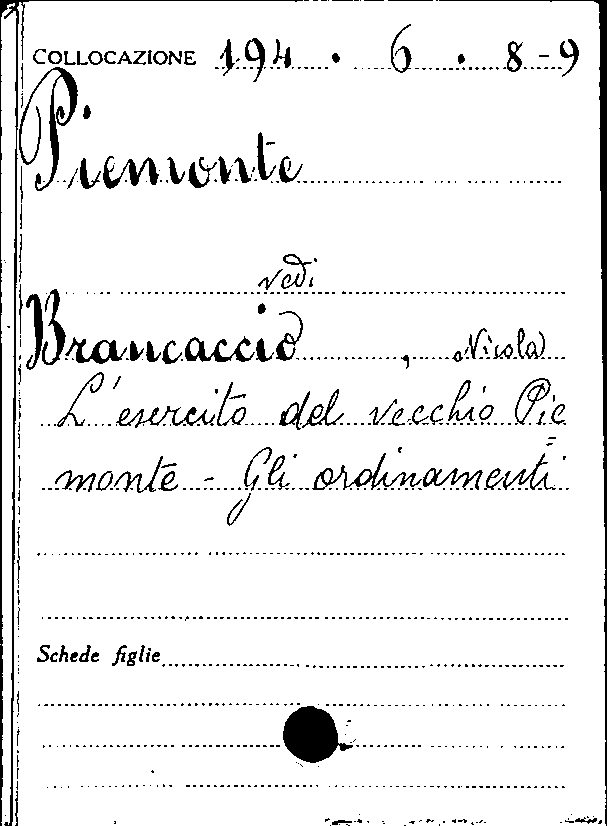 COLLOCAZIONE 194 . 6 . 8-9
Piemonte
vedi
Brancaccio, Nicola
L'esercito del vecchio Pie
=
monte - Gli ordinamenti
Schede figlie